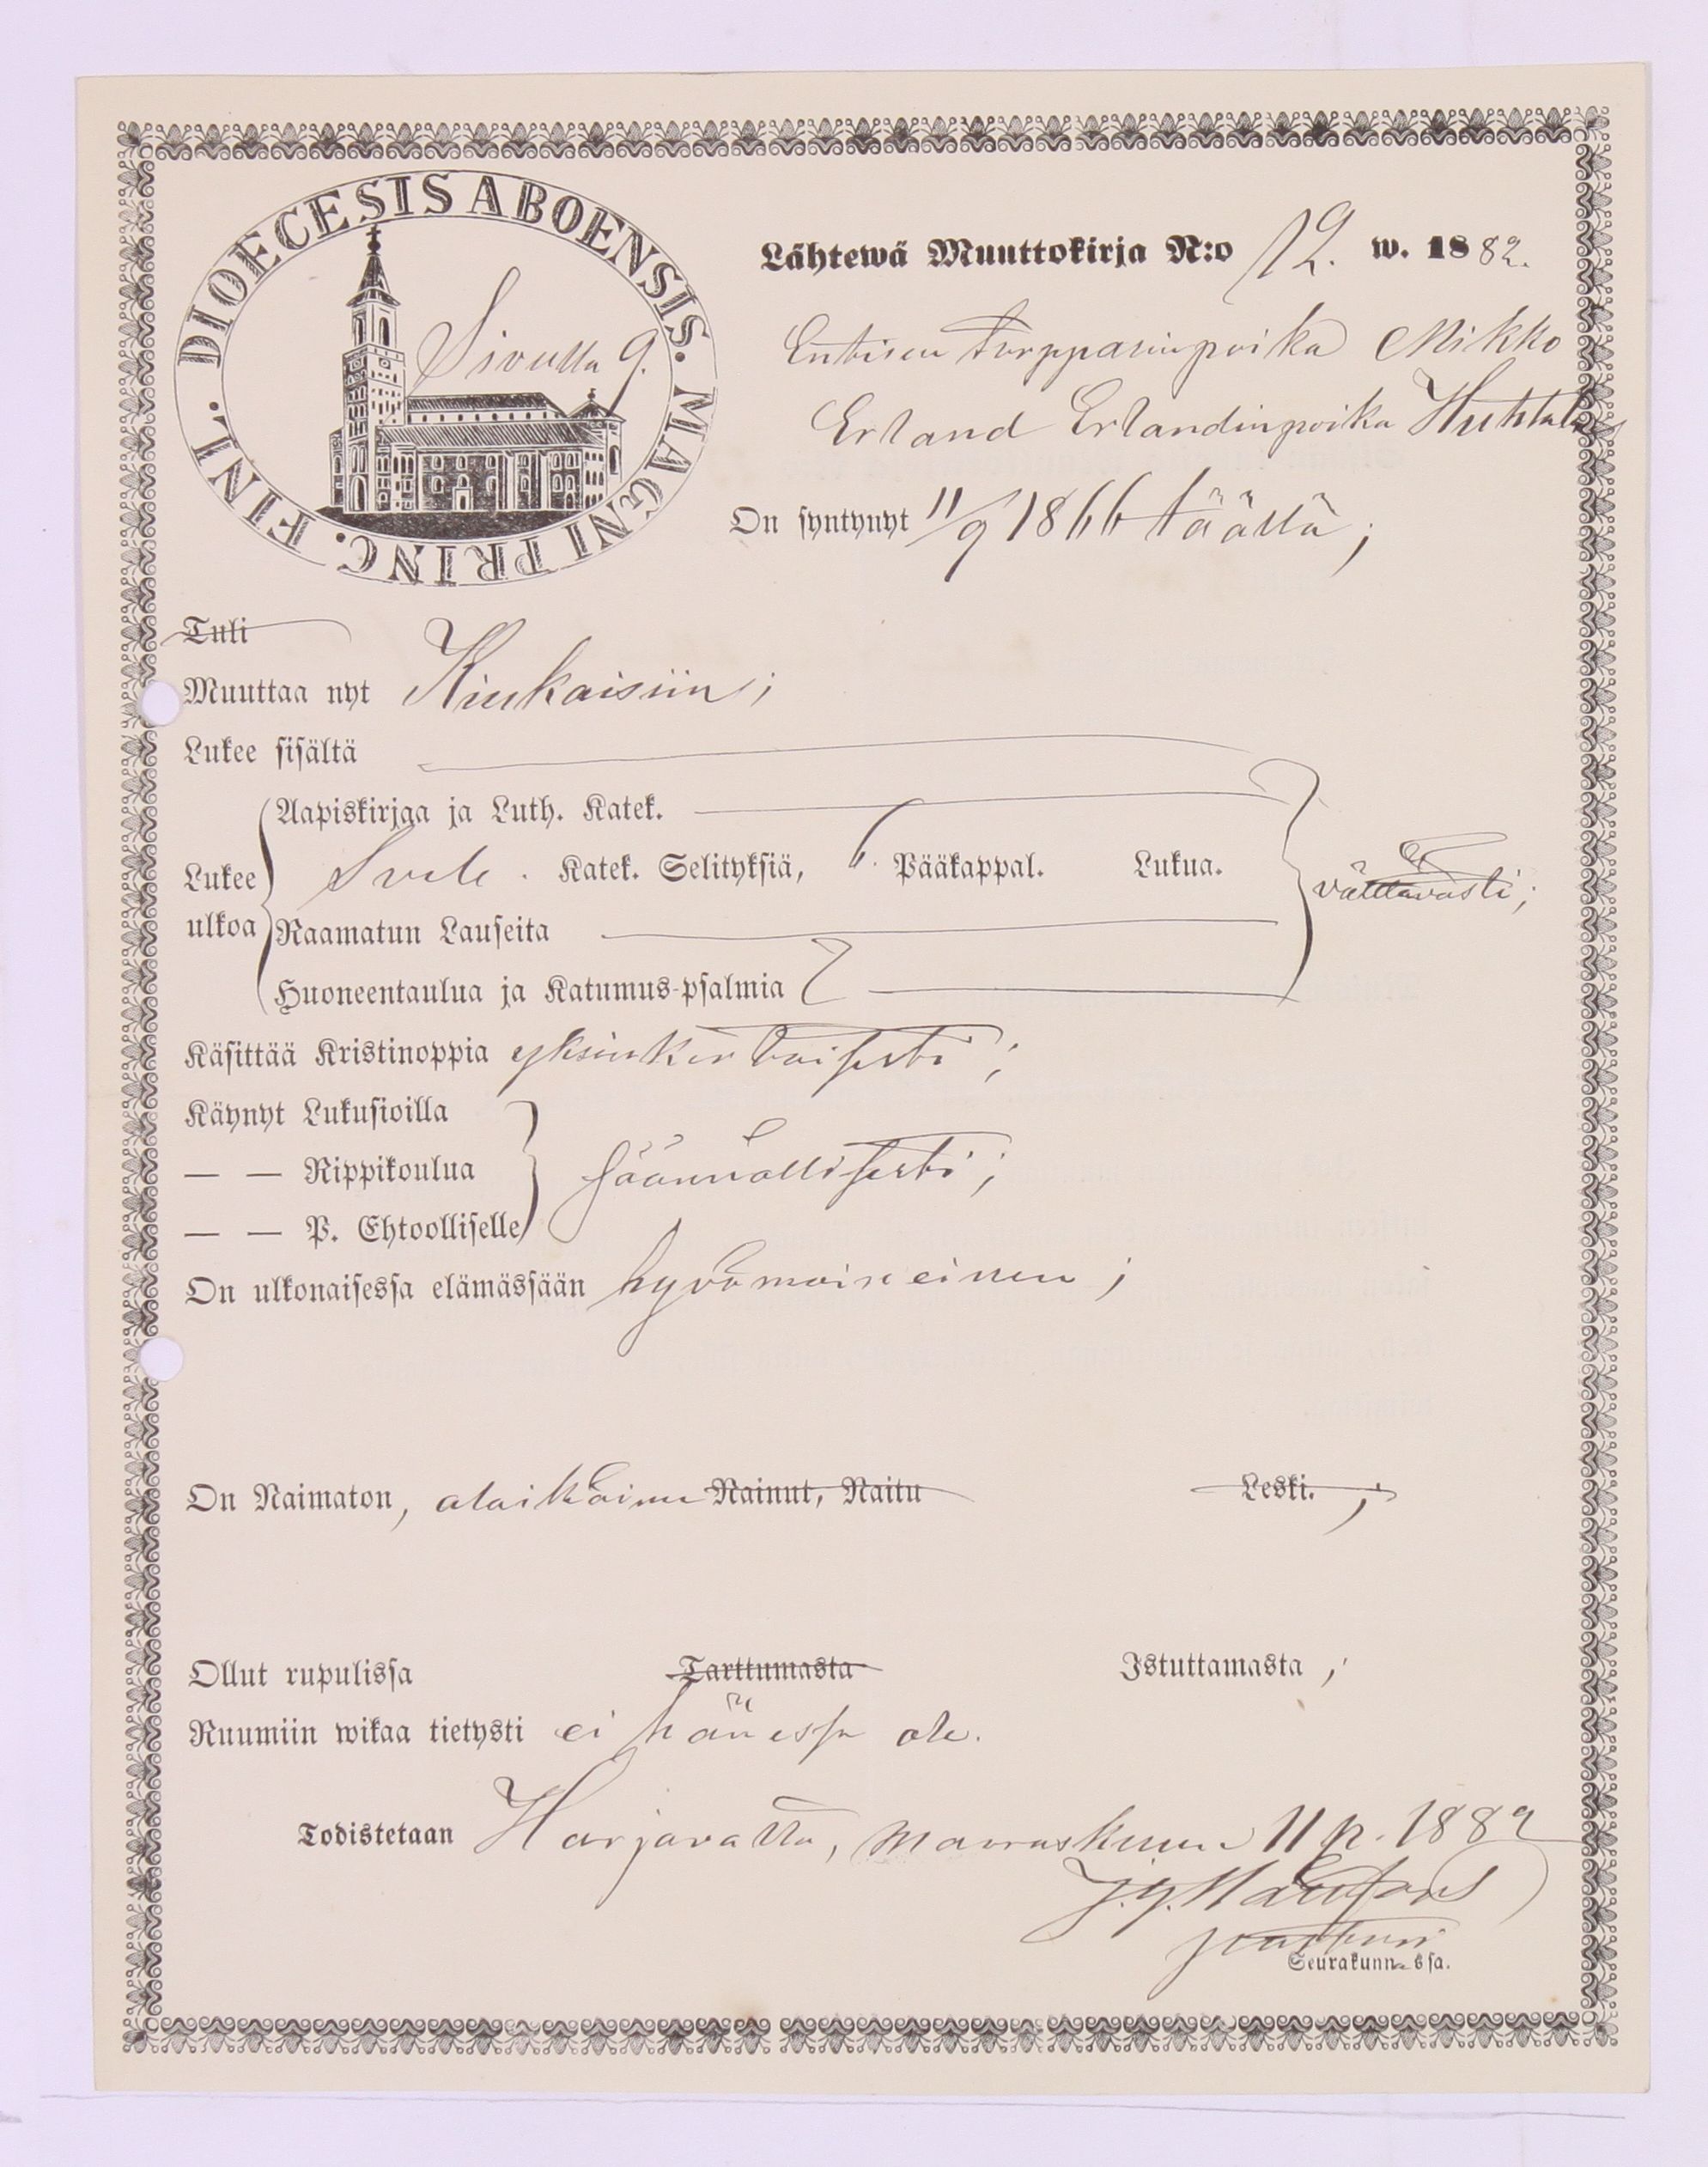 DIOECESIS ABOENSIS. MAGNI PRINC. FINL.
Sivulla 9.
Lähtewä Muuttokirja N:o 12. w. 1882.
Entisen torpparinpoika Mikko
Erland Erlandinpoika Huhtala
On syntynyt 11/9 1866 täällä;
Tuli
Muuttaa nyt Kiukaisiin;
Lukee sisältä
Aapiskirjaa ja Luth. Katek.
Lukee ulkoa
Katek. Selityksiä, 6. Pääkappal. Lukua.
välttävästi;
Raamatun Lauseita
Huoneentaulua ja Katumus-psalmia
Käsittää Kristinoppia yksinkertaisesti;
Käynyt Lukusioilla
— — Rippikoulua säännöllisesti;
— — P. Ehtoolliselle
On ulkonaisessa elämässään hyvämaineinen;
On Naimaton, alaikäinen Nainut, Naitu Leski.;
Ollut rupulissa Tarttumasta Istuttamasta;
Ruumiin wikaa tietysti ei hänessä ole.
Todistetaan Harjavalta, marraskuun 11 p. 1882
pastori
Seurakunnassa.